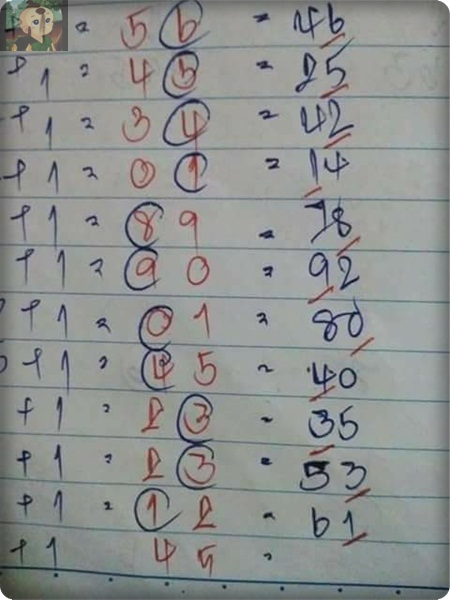 = 56 = 46
+1 = 45 = 25
+1 = 34 = 42
+1 = 01 = 14
+1 = 89 = 78
+1 = 90 = 92
+1 = 01 = 80
+1 = 45 = 40
+1 = 23 = 35
+1 = 23 = 53
+1 = 12 = 61
+1 45 =